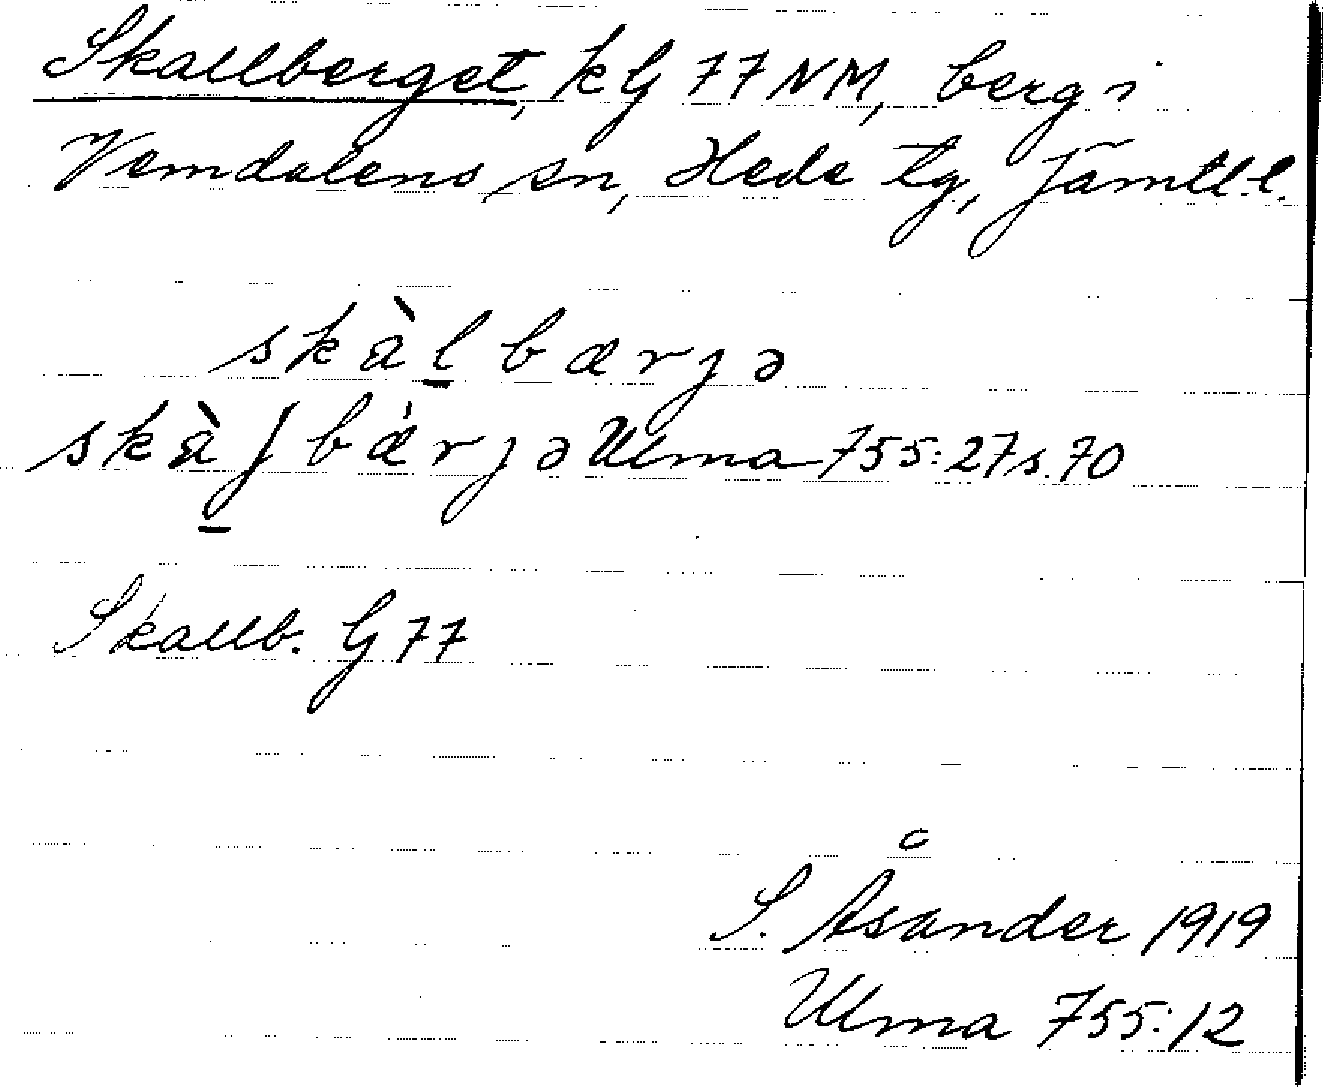 Skallberget, kG 77 NM, berg i
Vemdalens sn, Hede tg, Jämtl.l.
skàl̠bærjə
skà̠ʃbæ̀rjə Ulma 755:27 s. 70
Skallb. G 77
S. Åsander 1919
Ulma 755:12